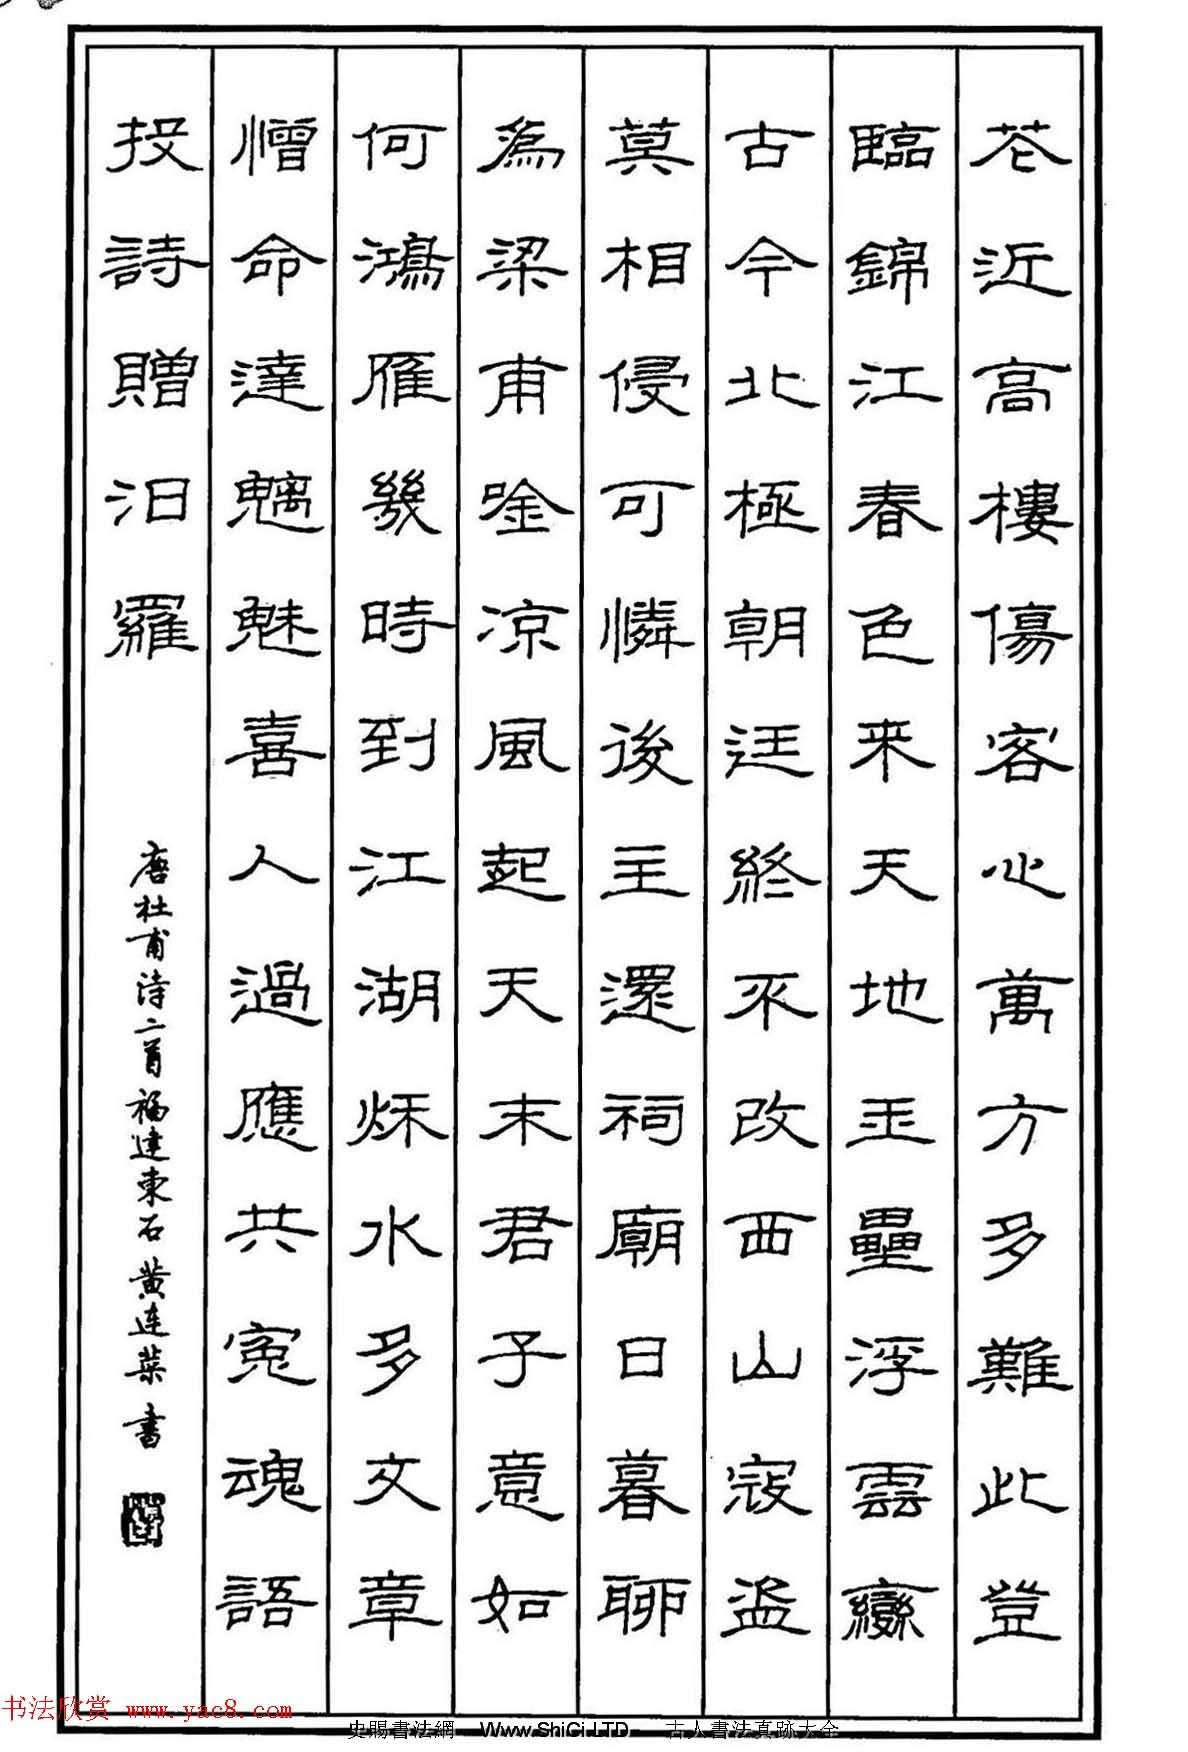 花近高樓傷客心萬方多難此登
臨錦江春色来天地玉壘浮雲變
古今北極朝廷終不改西山寇盗
莫相侵可憐後主還祠廟日暮聊
為梁甫唫凉風起天末君子意如
何鴻雁幾時到江湖秌水多文章
憎命達魑魅喜人過應共冤魂語
投詩贈汨羅
唐杜甫诗二首福建東石黄连葉書
书法欣赏 www.yac8.com
史賜書法網 Www.ShiCi.LTD 古人書法真跡大全